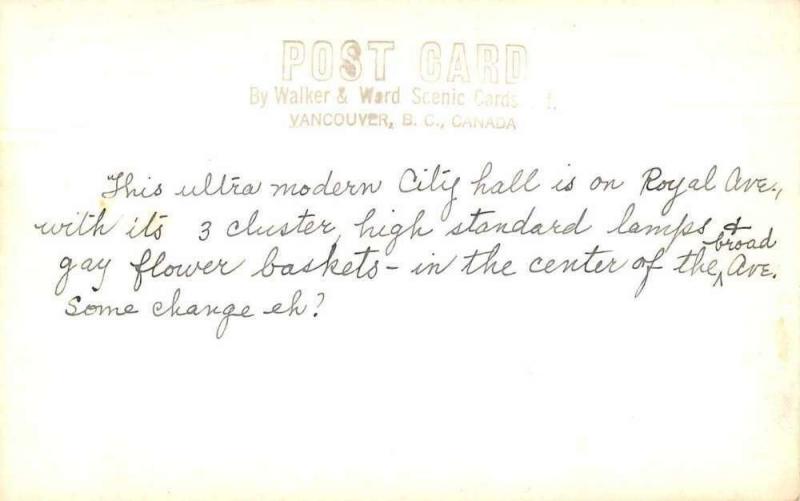 POST CARD
By Walker & Ward Scenic Cards
VANCOUVER, B. C., CANADA
This ultra modern City hall is on Royal Ave.,
with its 3 cluster, high standard lamps &
gay flower baskets – in the center of the broad Ave.
Some change eh?